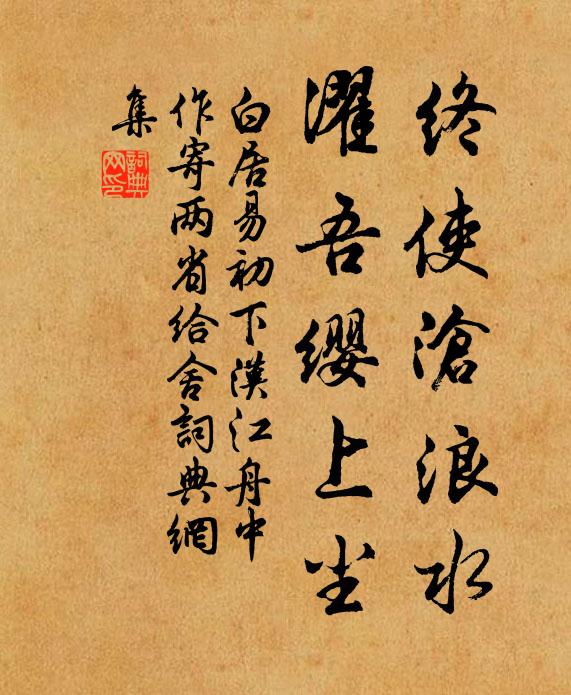 终使滄浪水
濯吾纓上尘
白居易初下漢江舟中
作寄两省给舍詞典網
集
詞典
网印